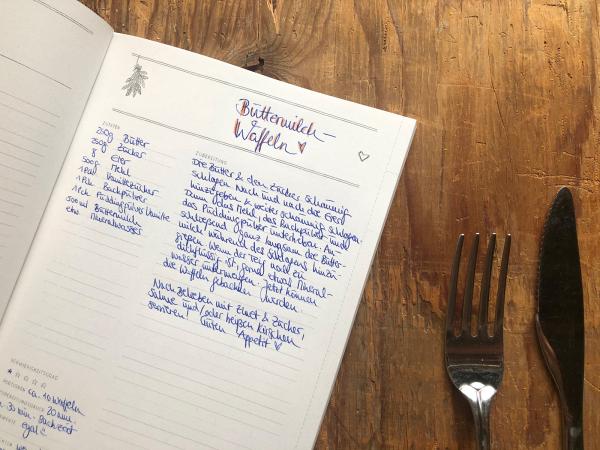 Buttermilch-
Waffeln
ZUTATEN
250g Butter
250g Zucker
8 Eier
500g Mehl
1 Pck Vanillezucker
1 Pck Backpulver
1 Pck Puddingpulver Vanille
500 ml Buttermilch
etw. Mineralwasser
ZUBEREITUNG
Die Butter & den Zucker schaumig
schlagen. Nach und nach die Eier
hinzugeben & weiter schaumig schlagen.
Dann das Mehl, das Backpulver und
das Puddingpulver unterheben. An-
schließend ganz langsam die Butter-
milch während des Schlagens hinzu-
gießen. Wenn der Teig noch zu
dickflüssig ist, sonst etwas Mineral-
wasser untermengen. Jetzt können
die Waffeln gebacken werden.
Nach Belieben mit Zimt & Zucker,
Sahne und/oder heißen Kirschen
servieren! Guten Appetit
SCHWIERIGKEITSGRAD
PORTIONEN ca. 10 Waffeln
20 min.
30 min. Backzeit
egal